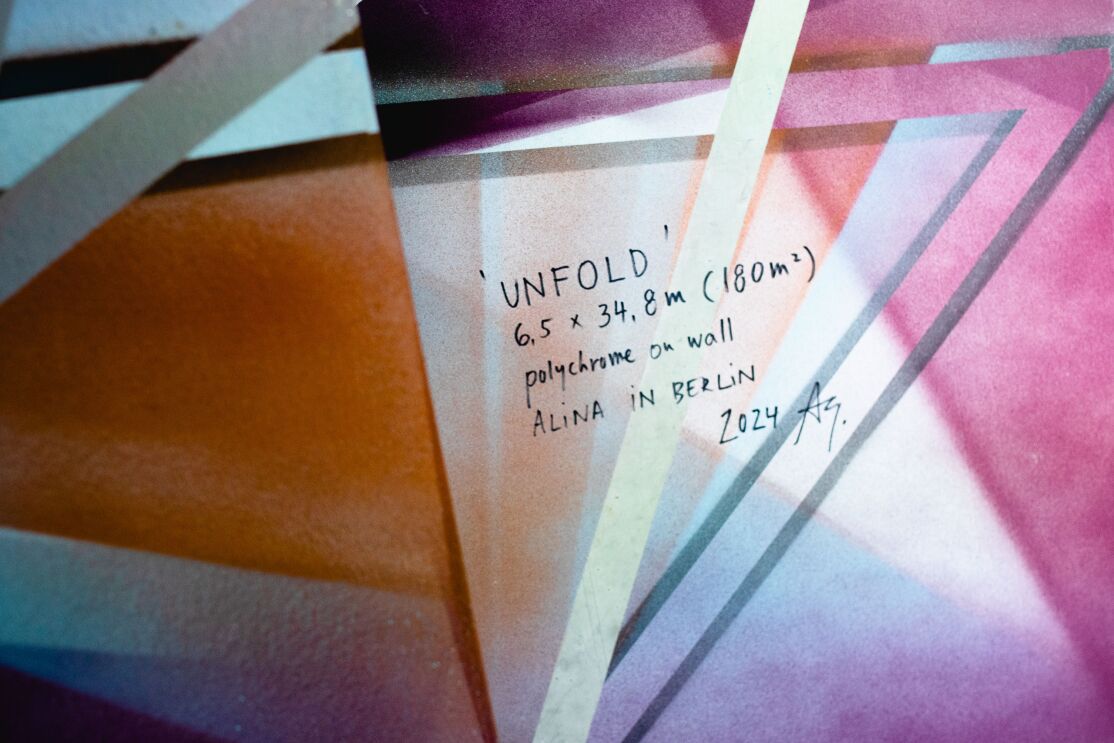 'UNFOLD'
6,5 x 34,8 m (180m²)
polychrome on wall
ALiNA iN BERLiN
2024